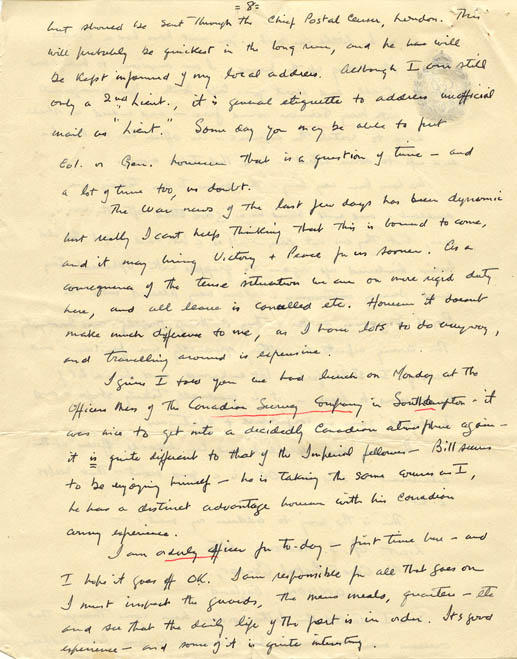 = 8 =
but should be sent through the Chief Postal Censor, London. This
will probably be quickest in the long run, and he has will
be kept informed of my local address. Although I am still
only a 2nd Lieut., it is general etiquette to address unofficial
mail as "Lieut." Some day you may be able to put
Col. or Gen. however that is a question of time – and
a lot of time too, no doubt.
The War news of the last few days has been dynamic
but really I cant help thinking that this is bound to come,
and it may bring Victory + Peace for us sooner. As a
consequence of the tense situation we are on more rigid duty
here, and all leave is cancelled etc. However it doesnt
make much difference to me, as I have lots to do anyway,
and travelling around is expensive.
I guess I told you we had lunch on Monday at the
Officers Mess of the Canadian Survey Company in Southampton – it
was nice to get into a decidedly Canadian atmosphere again –
it is quite different to that of the Imperial fellows – Bill seems
to be enjoying himself – he is taking the same course as I,
he has a distinct advantage however with his Canadian
army experience.
I am orderly officer for to-day – first time here – and
I hope it goes off OK. I am responsible for all that goes on
I must inspect the guards, the mens meals, quarters – etc
and see that the daily life of the post is in order. Its good
experience – and some of it is quite interesting.